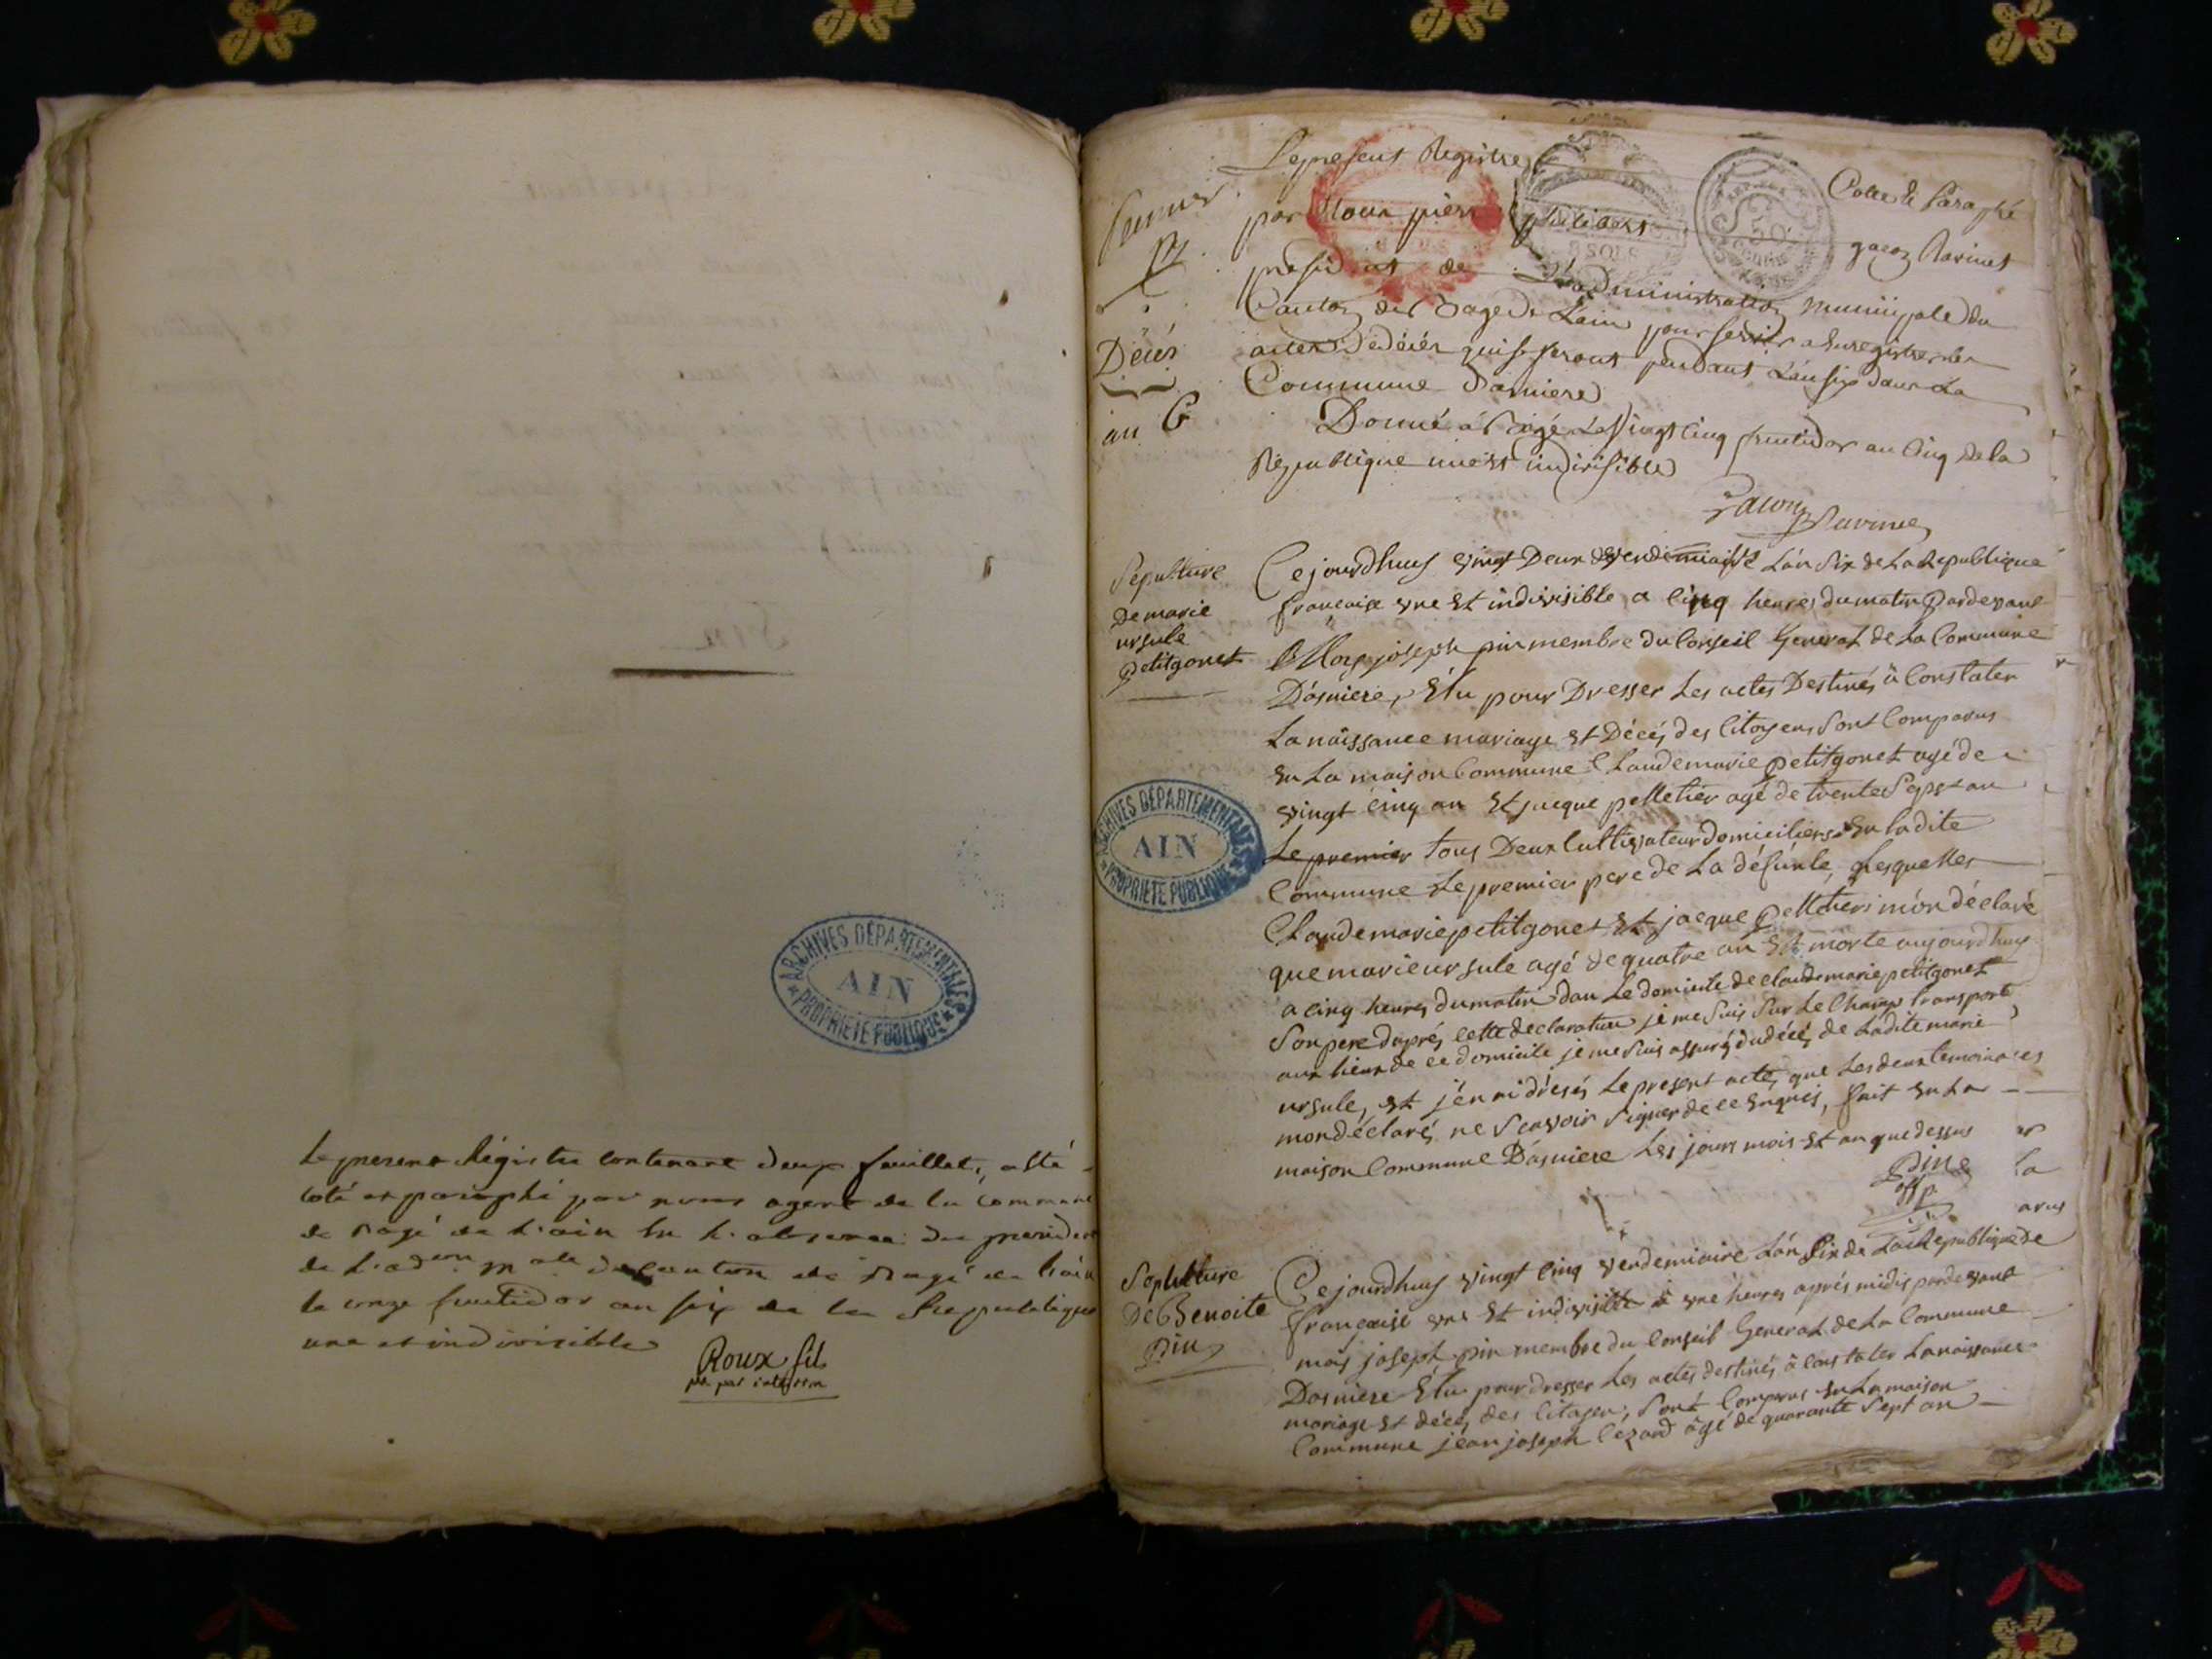 Le present Régistre contenant deux feuillets, a été
coté et paraphé par nous agent de la commune
de Bagé de L'ain en L'absence du president
de L'adon male du Canton de Bagé de L'ain
le onze fructidor an six de la Republique
une et indivisible
Roux fils
pt par interim
ARCHIVES DÉPARTEMENTALES
AIN
PROPRIÉTÉ PUBLIQUE
premier
Décés
an 6
Le present Registre Cotté & Paraphé
par Nous pierre philibert gacon Ravinet
president de L'administration municipale du
Canton de Bagé de Lain pour servir a Enregistrer les
actes de décés qui se feront pendant L'an six dans La
Commune d'asniere
Donné á Bagé Le Vingt Cinq fructidor an Cinq de la
Republique une et indivisible
Gacon Ravinet
Sépulture
De marie
ursule
petitgonet
Cejourdhuy vingt Deux vendemiaire L'án Six de La Republique
francaise vne Et indivisible a cinq heures du matin Pardevant
Moy joseph pin membre du Conseil General de La Commune
D'ásniere, Elu pour Dresser Les actes Destinés â Constater
La naissance mariage Et Décés des Citoyens Sont Comparus
En La maison Commune Claude marie petitgonet agé de
vingt cinq an Et jacque pelletier agé de trente Sept an
Le premier tous Deux Cultivateur domiciliers En ladite
Commune Le premier pere de La défunte, Lesquelles
Claude marie petitgonet Et jacque pelletier m'on déclaré
que marie ursule agé de quatre an Est morte aujourdhuy
a cinq heures du matin dan Le domicile de claude marie petitgonet
Son pere daprés cette declaration je me Suis Sur Le Champ transporté
aux lieux de ce domicile je me Suis assuré du décés de Ladite marie
ursule, Et j'en ai drésés Le present acte, que Les deux temoins
mon déclaré ne Scavoir Signer de ce Enquis, fait En La
maison Commune D'ásniere Les jours mois Et an que dessus
Pin
offp.
ARCHIVES DÉPARTEMENTALES
AIN
PROPRIÉTÉ PUBLIQUE
Sepulture
De Benoite
Pin
Cejourdhuy vingt Cinq vendemiaire L'án Six de La Republique
francaise vne Et indivisible â vne heures aprés midis pardevant
moi joseph pin membre du Conseil General de La Commune
Dasniere Elu pour dresser Les actes destinés â Constater La naissance
mariage Et décés des Citoyens, Sont Comparus En La maison
Commune jean joseph Lezard âgé de quarante Sept an